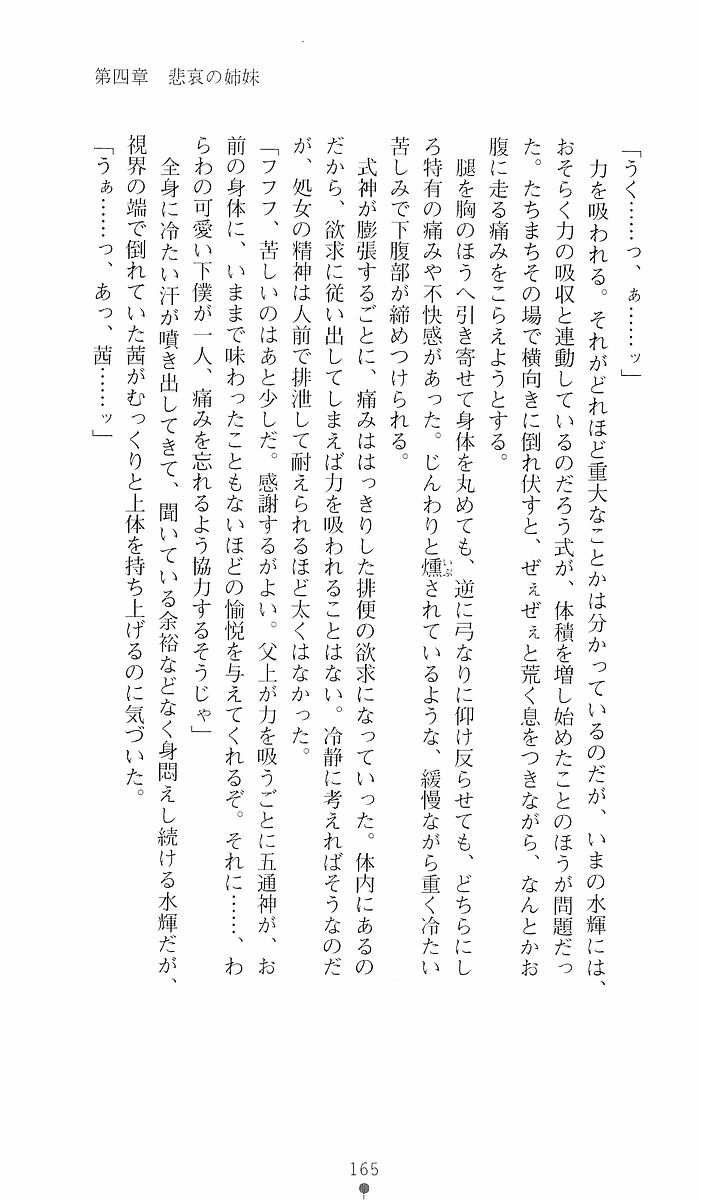 第四章　悲哀の姉妹
「うく……っ、ぁ……ッ」
　力を吸われる。それがどれほど重大なことかは分かっているのだが、いまの水輝には、
おそらく力の吸収と連動しているのだろう式が、体積を増し始めたことのほうが問題だっ
た。たちまちその場で横向きに倒れ伏すと、ぜぇぜぇと荒く息をつきながら、なんとかお
腹に走る痛みをこらえようとする。
　腿を胸のほうへ引き寄せて身体を丸めても、逆に弓なりに仰け反らせても、どちらにし
ろ特有の痛みや不快感があった。じんわりと燻いぶされているような、緩慢ながら重く冷たい
苦しみで下腹部が締めつけられる。
　式神が膨張するごとに、痛みははっきりした排便の欲求になっていった。体内にあるの
だから、欲求に従い出してしまえば力を吸われることはない。冷静に考えればそうなのだ
が、処女の精神は人前で排泄して耐えられるほど太くはなかった。
「フフフ、苦しいのはあと少しだ。感謝するがよい。父上が力を吸うごとに五通神が、お
前の身体に、いままで味わったこともないほどの愉悦を与えてくれるぞ。それに……、わ
らわの可愛い下僕が一人、痛みを忘れるよう協力するそうじゃ」
　全身に冷たい汗が噴き出してきて、聞いている余裕などなく身悶えし続ける水輝だが、
視界の端で倒れていた茜がむっくりと上体を持ち上げるのに気づいた。
「うぁ……っ、あっ、茜……ッ」
165